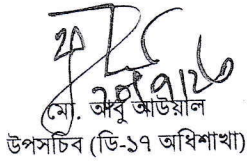 মো. আবু আউয়াল
উপসচিব (ডি-১৭ অধিশাখা)